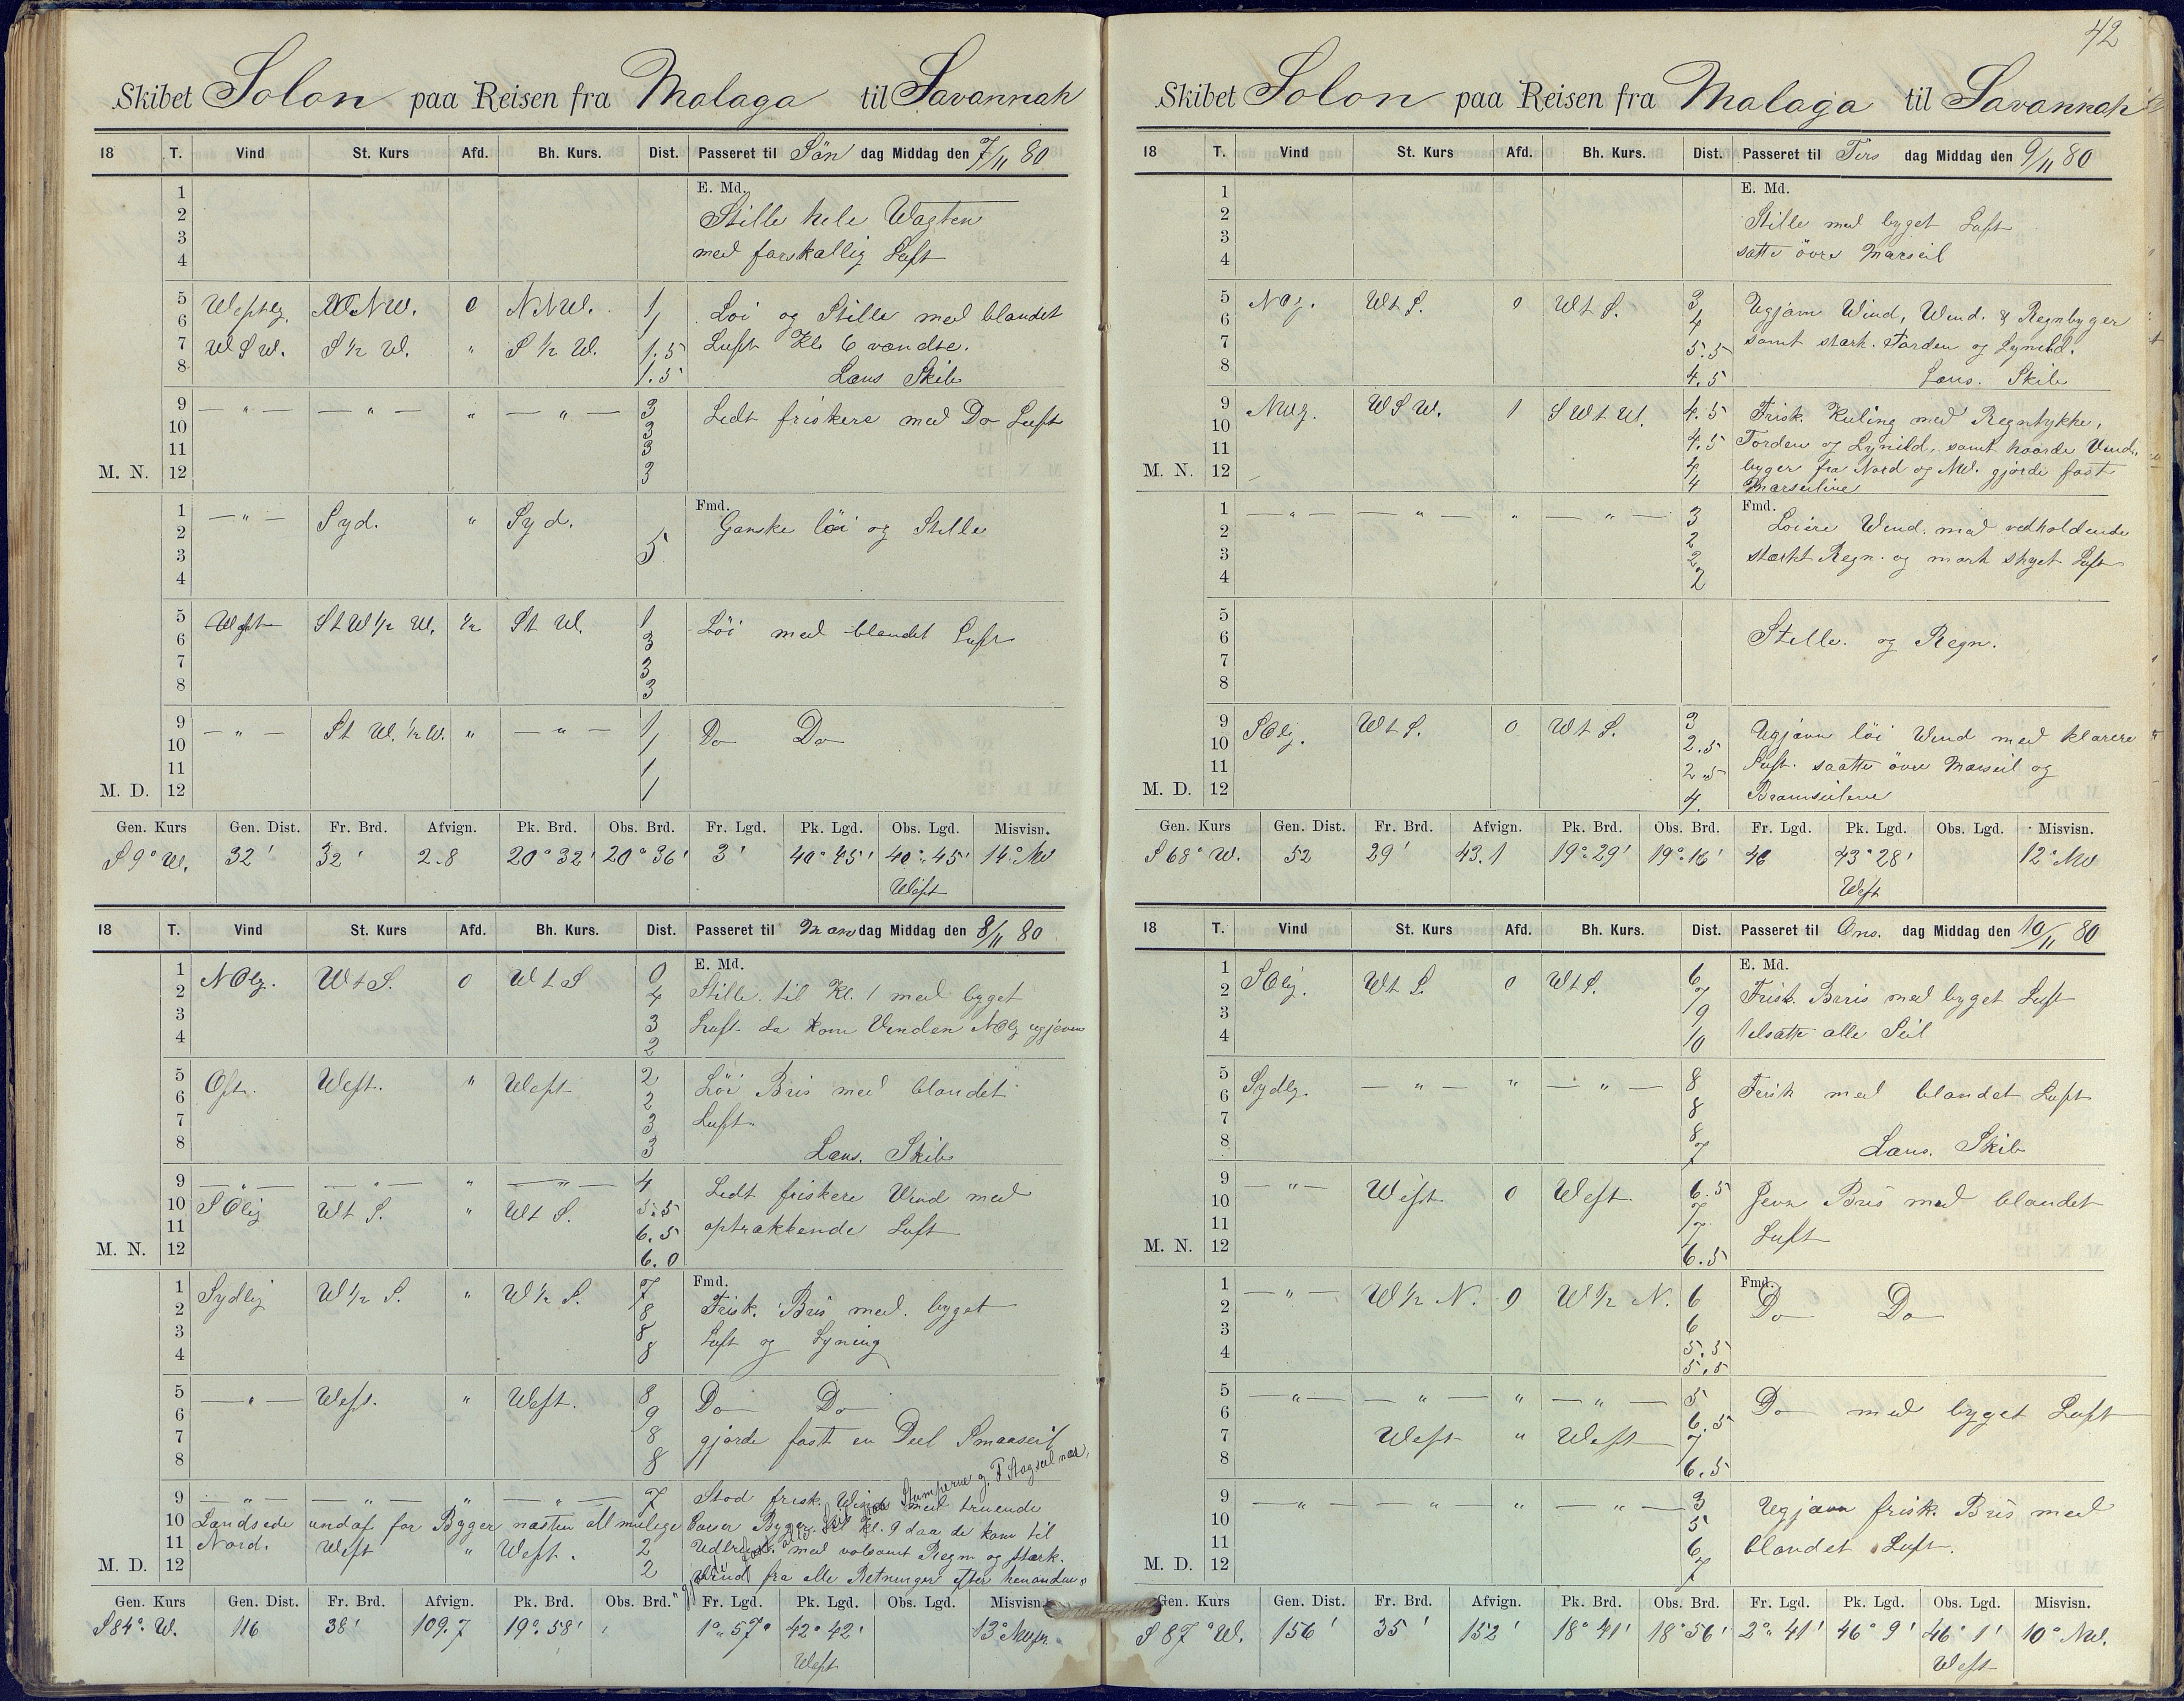 Skibet Solon paa Reisen fra Malaga til Savannah
18 T. Vind St. Kurs Afd. Bh. Kurs. Dist. Passeret til Søn dag Middag den 7/11 80
E. Md.
1
2 Stille hele Wagten
3
4 med forskallig Luft
5 Westlg. NNW. 0 NNW. 1 Löi og Stille med blandet
6 1
7 WSW. S ½ W. " S ½ W. 1.5 Luft Kl. 6 vendte.
8 1.5 Læns Skib
9 — " — — " — " — " — 3 Lidt friskere med Do Luft
10 3
11 3
M. N. 12 3
Fmd.
1 — " — Syd. " Syd. Ganske löi og Stille
2
3 5
4
5 West St W ½ W. ½ St W. 1 Löi med blandet Luft
6 3
7 3
8 3
9 — " — St W. ½ W. " — " — 1 Do Do
10 1
11 1
M. D. 12 1
Gen. Kurs Gen. Dist. Fr. Brd. Afvign. Pk. Brd. Obs. Brd. Fr. Lgd. Pk. Lgd. Obs. Lgd. Misvisn.
S 9° W. 32' 32' 2.8 20° 32' 20° 36' 3' 40° 45' 40° 45' 14° NW
West
18 T. Vind St. Kurs Afd. Bh. Kurs. Dist. Passeret til Man dag Middag den 8/11 80
E. Md.
1 NOlg. WtS. 0 WtS 0
2 4 Stille til Kl. 1 med byget
3 3 Luft. da kom Vinden NOlg ugjævn
4 2
5 Ost. West. " West 2 Löi Bris med blandet
6 2
7 3 Luft.
8 3 Læns. Skib
9 — " — — " — " — " — 4 Lidt friskere Vind med
10 SOlig Wt S. " Wt S. 5.5
11 6.5 optrækkende Luft
M. N. 12 6.0
Fmd.
1 Sydlig W ½ S. " W ½ S. 7
2 8 Frisk. Bris med. byget
3 8 Luft og Lyning
4 8
5 — " — West. " West. 8 Do Do
6 9
7 8 gjorde fast en Deel Smaaseil
8 8
9 — " — — " — " — " — 7 Stod frisk. Wind med truende
10 Landsede undaf for Byger næsten all mulige Courser Byger. til Kl. 9 daa de kom til
11 Nord. West " West. 2 Udbrud. med volsomt Regn og stærk.
M. D. 12 2 Wind fra alle Retninger efter henanden
gjorde fast alle Seil paa Stumperne og F Stagseil nær,
Gen. Kurs Gen. Dist. Fr. Brd. Afvign. Pk. Brd. Obs. Brd. Fr. Lgd. Pk. Lgd. Obs. Lgd. Misvisn.
S 84° W. 116 38' 109.7 19° 58' 1° 57' 42° 42' 13° NW
West
42
Skibet Solon paa Reisen fra Malaga til Savannah
18 T. Vind St. Kurs Afd. Bh. Kurs. Dist. Passeret til Tirs dag Middag den 9/11 80
E. Md.
1
2 Stille med byget Luft
3
4 satte övre Marseil
5 NOg. Wt S. 0 Wt S. 3 Ugjævn Wind, Wind. & Regnbyger
6 4
7 5.5 samt stærk. Torden og Lynild.
8 4.5 Læns. Skib
9 NWg. WSW. 1 SWtW. 4.5 Frisk. Kuling med Regntykke,
10 4.5 Torden og Lynild, samt haarde Vind-
11 4 byger fra Nord og NW. gjorde fast
M. N. 12 4 Marseilene
Fmd.
1 — " — — " — " — " — 3 Löiere Wind. med vedholdende
2 2
3 2 stærkt Regn. og mørk skyet Luft
4 2
5
6 Stille. og Regn.
7
8
9 SOlg. Wt S. 0 Wt S. 3 Ugjævn löi Wind med klarere
10 2.5
11 2.5 Luft. saatte övre Marseil og
M. D. 12 4 Bramseilene
Gen. Kurs Gen. Dist. Fr. Brd. Afvign. Pk. Brd. Obs. Brd. Fr. Lgd. Pk. Lgd. Obs. Lgd. Misvisn.
S 68° W. 52 29' 43.1 19° 29' 19° 16' 46 43° 28' 12° NW
West
18 T. Vind St. Kurs Afd. Bh. Kurs. Dist. Passeret til Ons. dag Middag den 10/11 80
E. Md.
1 SOlig. Wt S. 0 WtS. 6
2 7 Frisk. Bris med byget Luft
3 9
4 10 tilsatte alle Seil
5 Sydlg. — " — " — " — 8 Frisk med blandet Luft
6 8
7 8
8 7 Læns. Skib
9 — " — West. 0 West. 6.5 Jevn Bris med blandet
10 7
11 7 Luft
M. N. 12 6.5
Fmd.
1 — " — W ½ N. 0 W ½ N. 6 Do Do
2 6
3 5.5
4 5.5
5 — " — — " — " — " — 5 Do med byget Luft
6 6.5
7 West " West 7
8 6.5
9 — " — — " — " — " — 3 Ugjævn frisk. Bris med
10 5
11 6 blandet Luft.
M. D. 12 7
Gen. Kurs Gen. Dist. Fr. Brd. Afvign. Pk. Brd. Obs. Brd. Fr. Lgd. Pk. Lgd. Obs. Lgd. Misvisn.
S 87° W. 156' 35' 152' 18° 41' 18° 56' 2° 41' 46° 9' 46° 1' 10° NW.
West